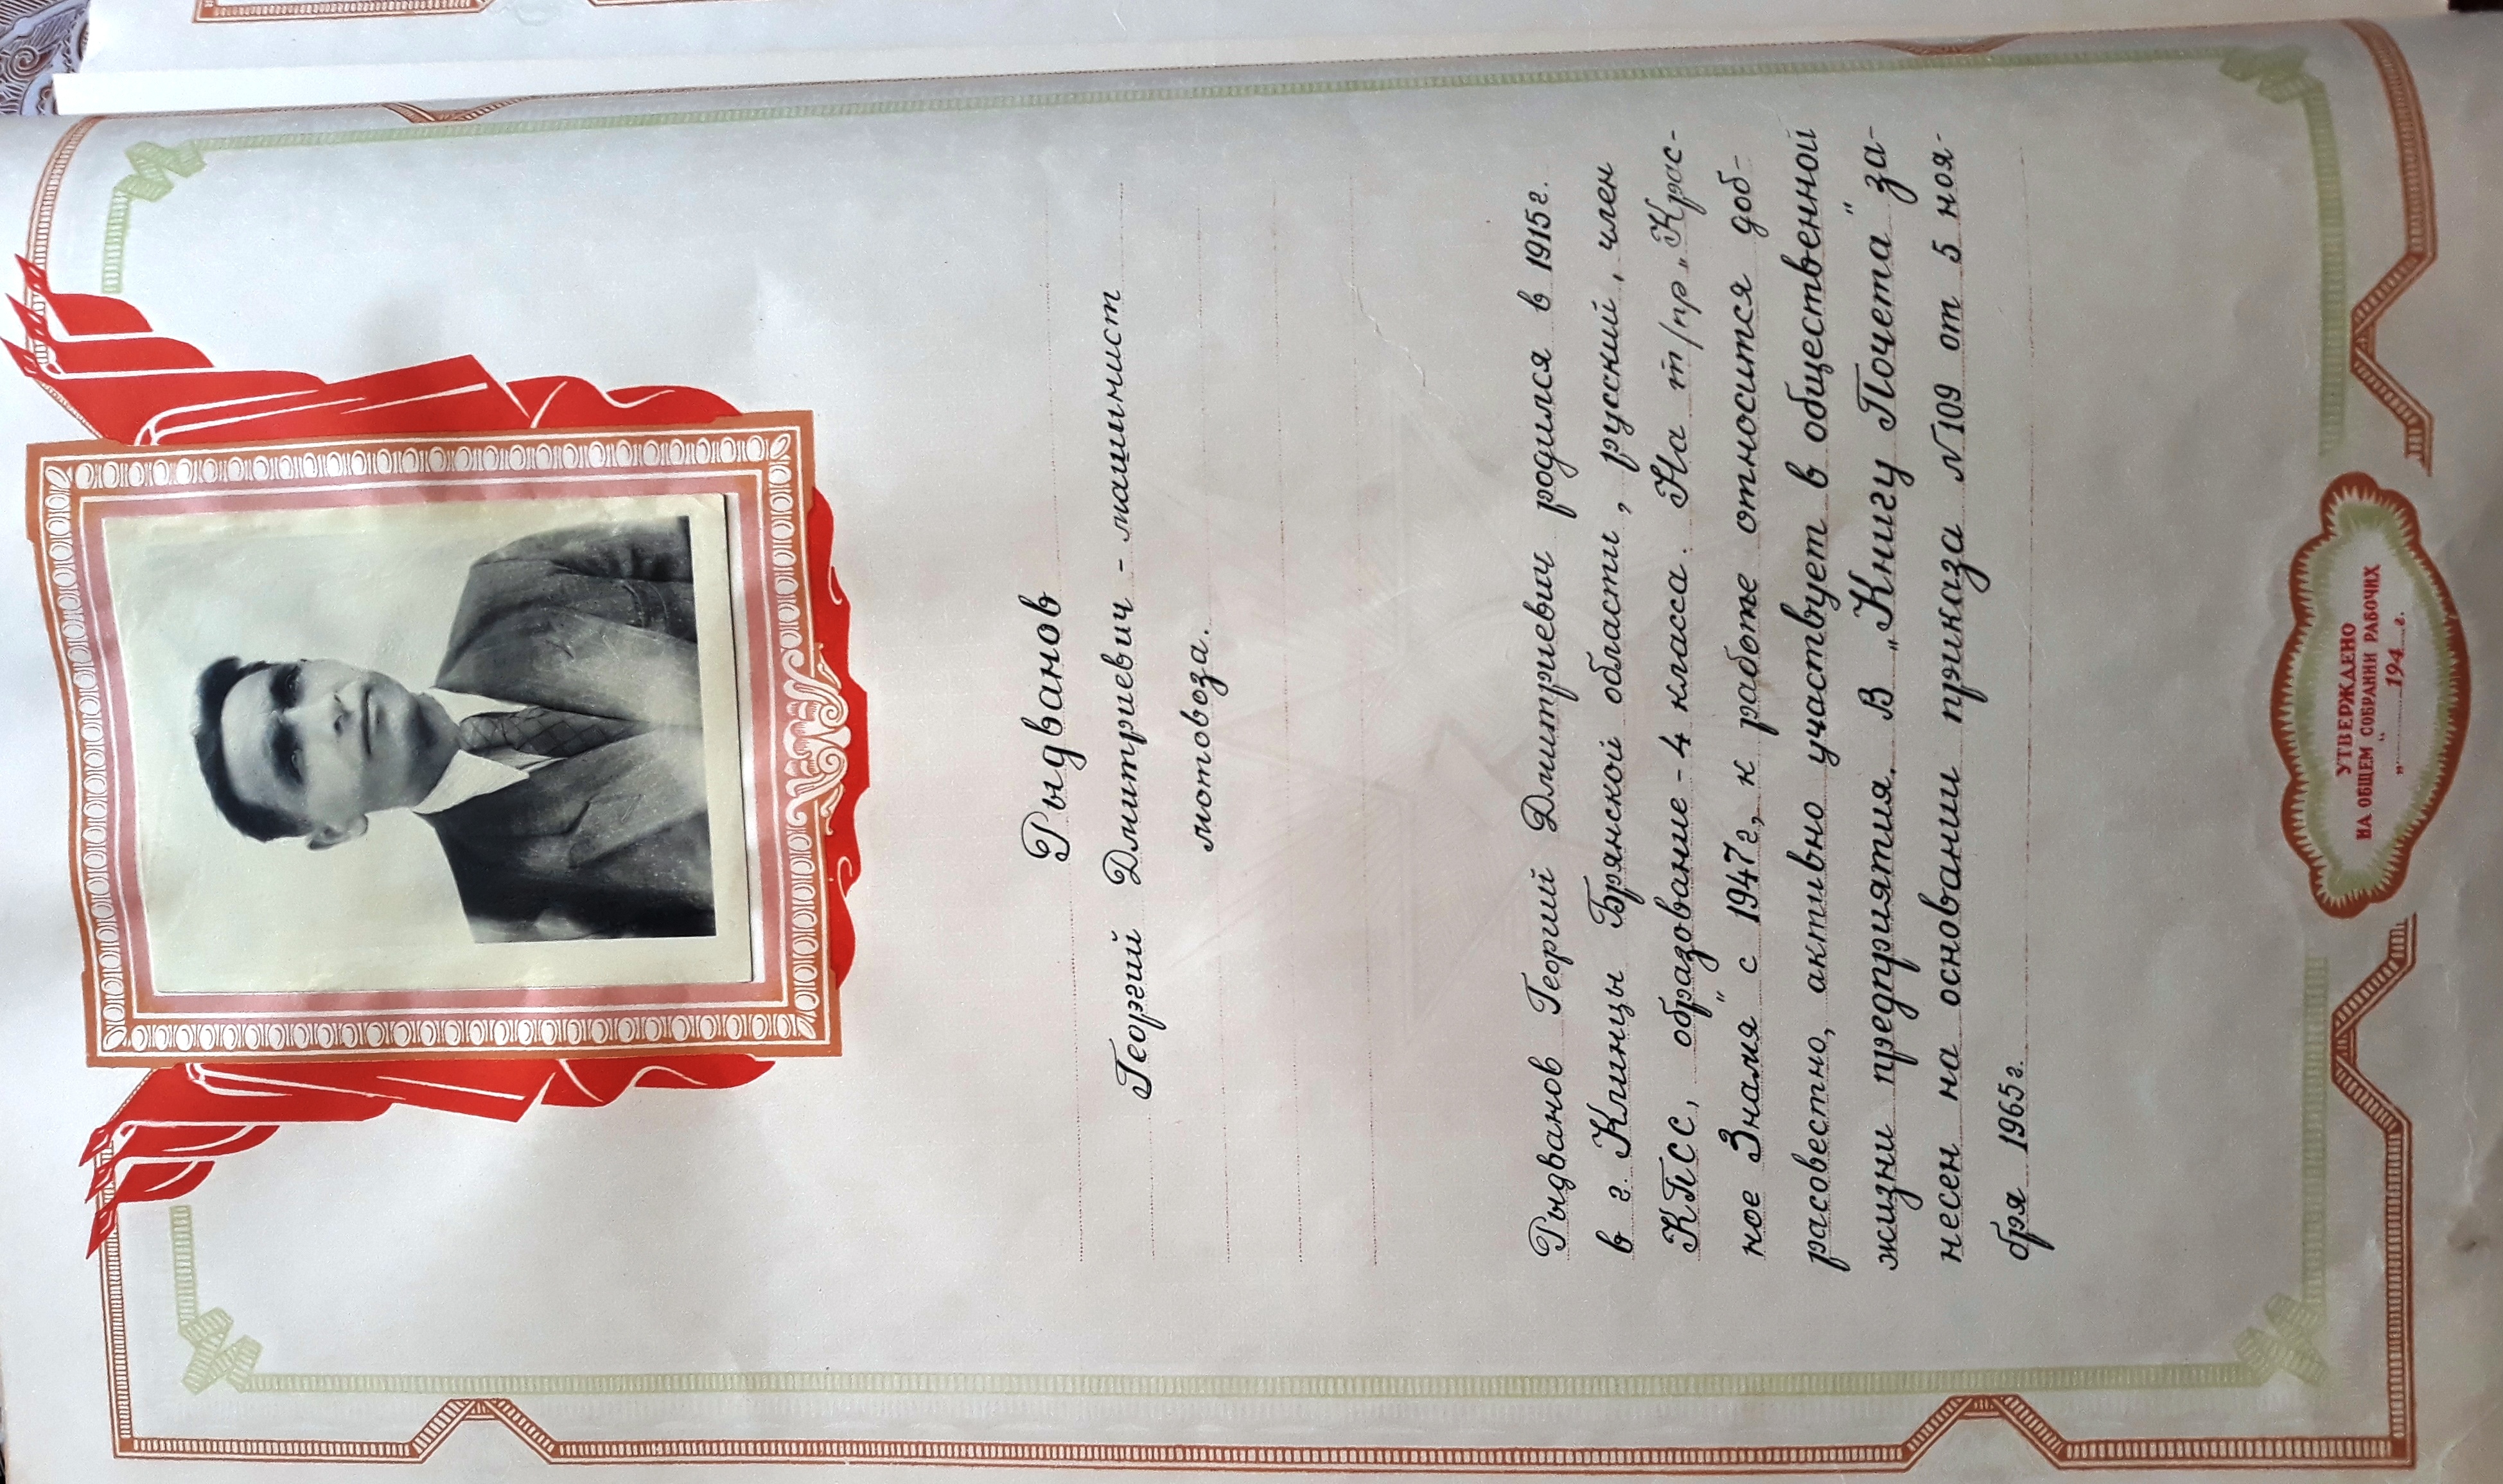 Рыдванов
Георгий Дмитриевич - машинист
мотовоза.
Рыдванов Георгий Дмитриевич родился в 1915г.
в г. Клинцы Брянской области, русский, член
КПСС, образование - 4 класса. На т/пр „Крас-
ное Знамя" с 1947г., к работе относится доб-
расовестно, активно участвует в общественной
жизни предприятия. В „Книгу Почета" за-
несен на основании приказа №109 от 5 ноя-
бря 1965г.
УТВЕРЖДЕНО
НА ОБЩЕМ СОБРАНИИ РАБОЧИХ
„ " 194 г.